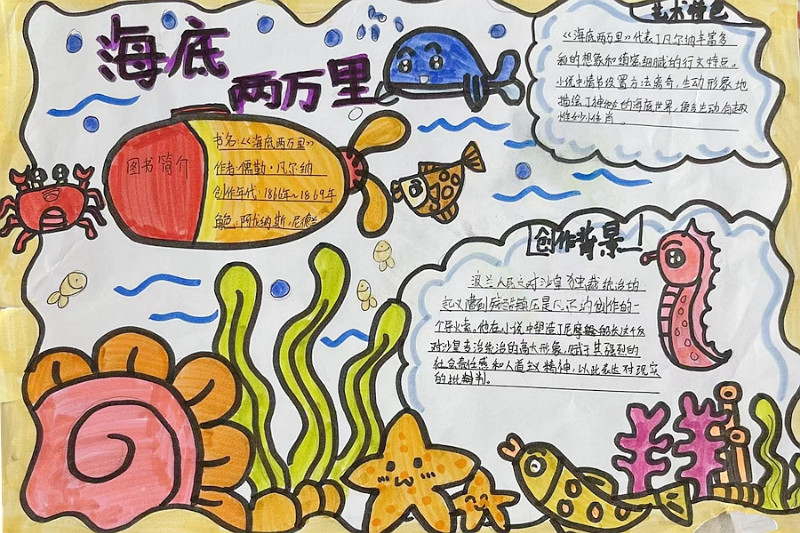 海底
两万里
图书简介
书名:《海底两万里》
作者:儒勒·凡尔纳
创作年代:1866年~1869年
角色:阿龙纳斯,尼德兰
艺术特色
《海底两万里》代表了凡尔纳丰富多
彩的想象和缜密细腻的行文特点。
小说中情节设置方法离奇,生动形象地
描绘了神秘的海底世界,
创作背景
波兰人民反对沙皇独裁统治的
起义遭到残酷镇压是凡尔纳创作的
一个导火索。他在小说中塑造了尼摩船长这个反
对沙皇专治统治的高大形象,赋予其强烈的
社会责任感和人道主义精神,以此表达对现实
的批判。